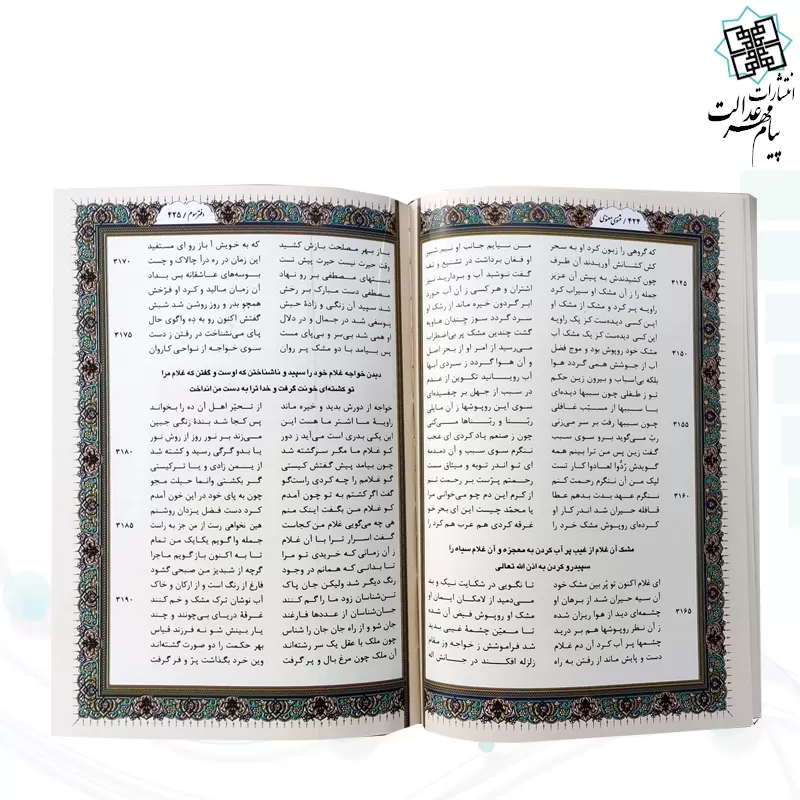 ۴۲۴ / مثنوی معنوی
که گروهی را زبون کرد او به سحر من نیایم جانب او نیم شبر
کش کشانش آوریدند آن طرف او فغان برداشت در تشنیع و تف
۳۱۴۵ چون کشیدندش به پیش آن عزیز گفت نوشید آب و بردارید نیز
جمله را ز آن مشک او سیراب کرد اشتران و هر کسی ز آن آب خورد
راویه پر کرد و مشک از مشک او ابر گردون خیره ماند از رشک او
این کسی دیده‌ست کز یک راویه سرد گردد سوز چندان هاویه
این کسی دیده‌ست کز یک مشک آب گشت چندین مشک پر بی‌اضطراب
۳۱۵۰ مشک خود روپوش بود و موج فضل می‌رسید از امر او از بحر اصل
آب از جوشش همی گردد هوا و آن هوا گردد ز سردی آبها
بلکه بی‌اسباب و بیرون زین حکم آب رویانید تکوین از عدم
تو ز طفلی چون سببها دیده‌ای در سبب از جهل بر چفسیده‌ای
با سببها از مسبب غافلی سوی این روپوشها ز آن مایلی
۳۱۵۵ چون سببها رفت بر سر می‌زنی ربّنا و ربّناها می‌کنی
ربّ می‌گوید برو سوی سبب چون ز صنعم یاد کردی ای عجب
گفت زین پس من ترا بینم همه ننگرم سوی سبب و آن دمدمه
گویدش رُدّوا لعادوا کار تست ای تو اندر توبه و میثاق سست
لیک من آن ننگرم رحمت کنم رحمتم پرّست بر رحمت تنم
۳۱۶۰ ننگرم عهد بدت بدهم عطا از کرم این دم چو می‌خوانی مرا
قافله حیران شد اندر کار او یا محمّد چیست این ای بحر خو
کرده‌ای روپوش مشک خرد را غرقه کردی هم عرب هم کرد را
مشک آن غلام از غیب پر آب کردن به معجزه و آن غلام سیاه را
سپیدرو کردن به اذن الله تعالی
ای غلام اکنون تو پُر بین مشک خود تا نگویی در شکایت نیک و بد
آن سیه حیران شد از برهان او می‌دمید از لامکان ایمان او
۳۱۶۵ چشمه‌ای دید از هوا ریزان شده مشک او روپوش فیض آن شده
ز آن نظر روپوشها هم بر درید تا معیّن چشمهٔ غیبی بدید
چشمها پر آب کرد آن دم غلام شد فراموشش ز خواجه وز مقام
دست و پایش ماند از رفتن به راه زلزله افکند در جانش اله
دفتر سوم / ۴۲۵
باز بهر مصلحت بازش کشید که به خویش آ باز رو ای مستفید
۳۱۷۰ وقت حیرت نیست حیرت پیش تست این زمان در ره درآ چالاک و چست
دستهای مصطفی بر رو نهاد بوسه‌های عاشقانه بس بداد
مصطفی دست مبارک بر رخش آن زمان مالید و کرد او فرّخش
شد سپید آن زنگی و زادهٔ حبش همچو بدر و روز روشن شد شبش
یوسفی شد در جمال و در دلال گفتش اکنون رو به ده واگوی حال
۳۱۷۵ او همی شد بی‌سر و بی‌پای مست پای می‌نشناخت در رفتن ز دست
پس بیامد با دو مشک پر روان سوی خواجه از نواحی کاروان
دیدن خواجه غلام خود را سپید و ناشناختن که اوست و گفتن که غلام مرا
تو کشته‌ای خونت گرفت و خدا ترا به دست من انداخت
خواجه از دورش بدید و خیره ماند از تحیّر اهل آن ده را بخواند
راویهٔ ما اشتر ما هست این پس کجا شد بندهٔ زنگی جبین
این یکی بدری است می‌آید ز دور می‌زند بر نور روز از روش نور
۳۱۸۰ کو غلام ما مگر سرگشته شد یا بدو گرگی رسید و کشته شد
چون بیامد پیش گفتش کیستی از یمن زادی و یا ترکیستی
کو غلامم را چه کردی راست‌گو گر بکشتی وانما حیلت مجو
گفت اگر کشتم به تو چون آمدم چون به پای خود در این خون آمدم
کو غلام من بگفت اینک منم کرد دست فضل یزدان روشنم
۳۱۸۵ هی چه می‌گویی غلام من کجاست هین نخواهی رست از من جز به راست
گفت اسرار ترا با آن غلام جمله واگویم یکایک من تمام
ز آن زمانی که خریدی تو مرا تا به اکنون بازگویم ماجرا
تا بدانی که همانم در وجود گرچه از شبدیز من صبحی گشود
رنگ دیگر شد ولیکن جان پاک فارغ از رنگ است و از ارکان و خاک
۳۱۹۰ تن‌شناسان زود ما را گم کنند آب نوشان ترک مشک و خم کنند
جان‌شناسان از عددها فارغند غرقهٔ دریای بی‌چونند و چند
جان شو و از راه جان جان را شناس یار بینش شو نه فرزند قیاس
چون ملک با عقل یک سر رشته‌اند بهر حکمت را دو صورت گشته‌اند
آن ملک چون مرغ بال و پر گرفت وین خرد بگذاشت پرّ و فر گرفت
انتشارات
پیام مهر عدالت